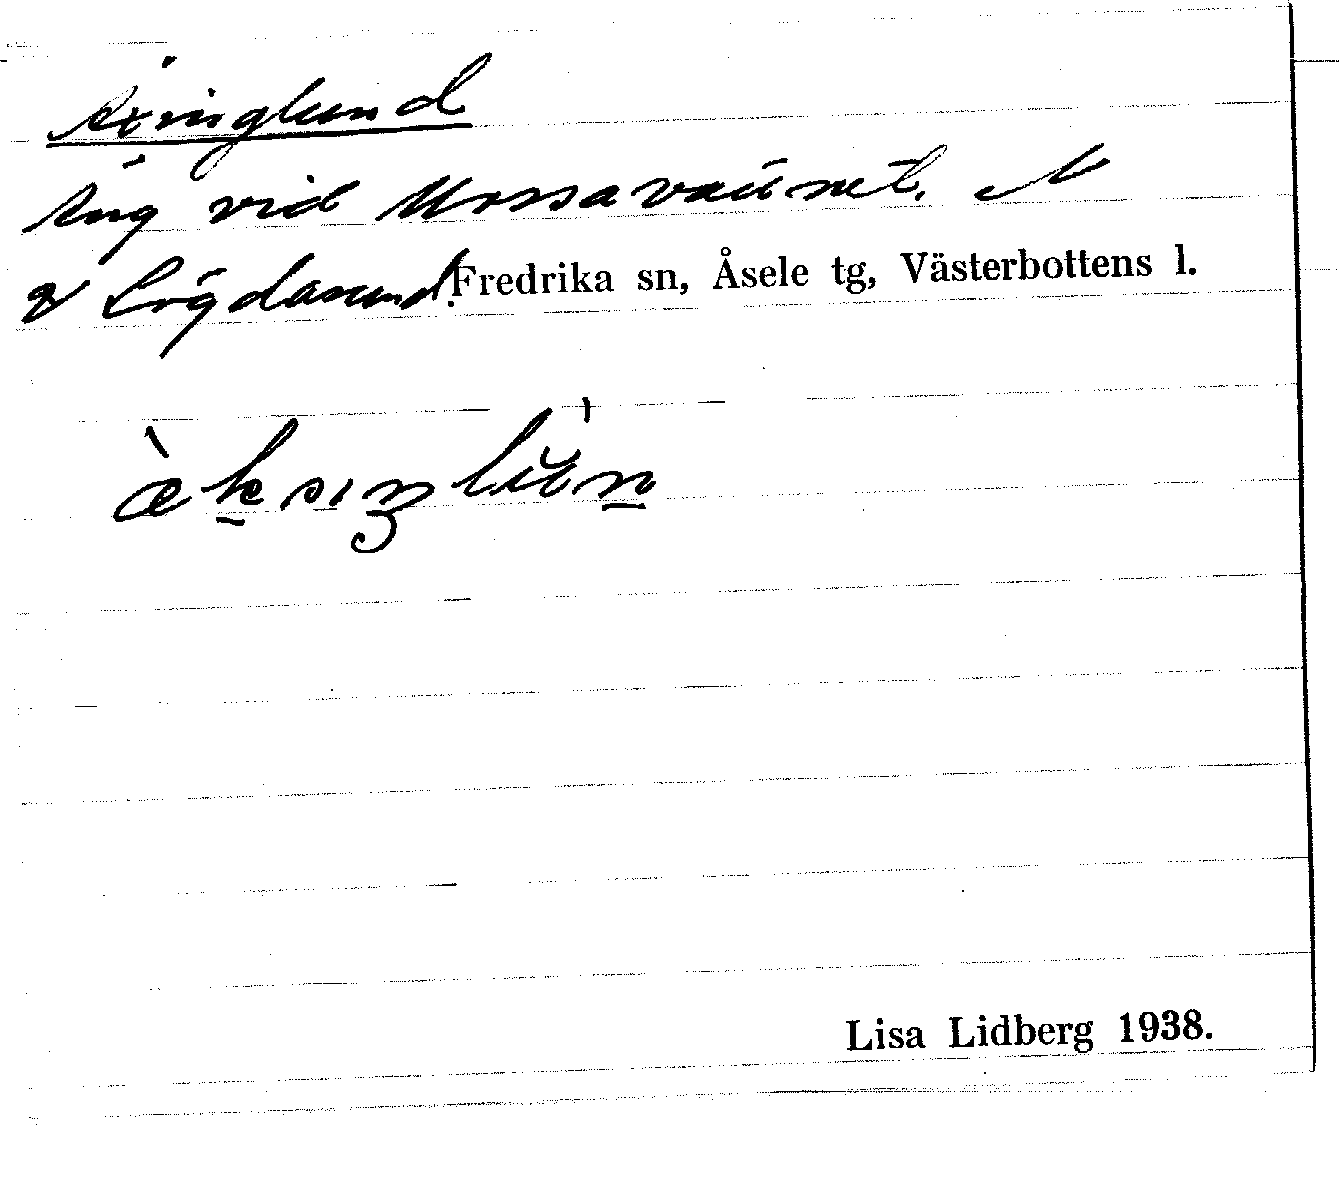 Äxinglund
Äng vid Mossavattnet. N
v Lögdasund. Fredrika sn, Åsele tg, Västerbottens l.
Lisa Lidberg 1938.